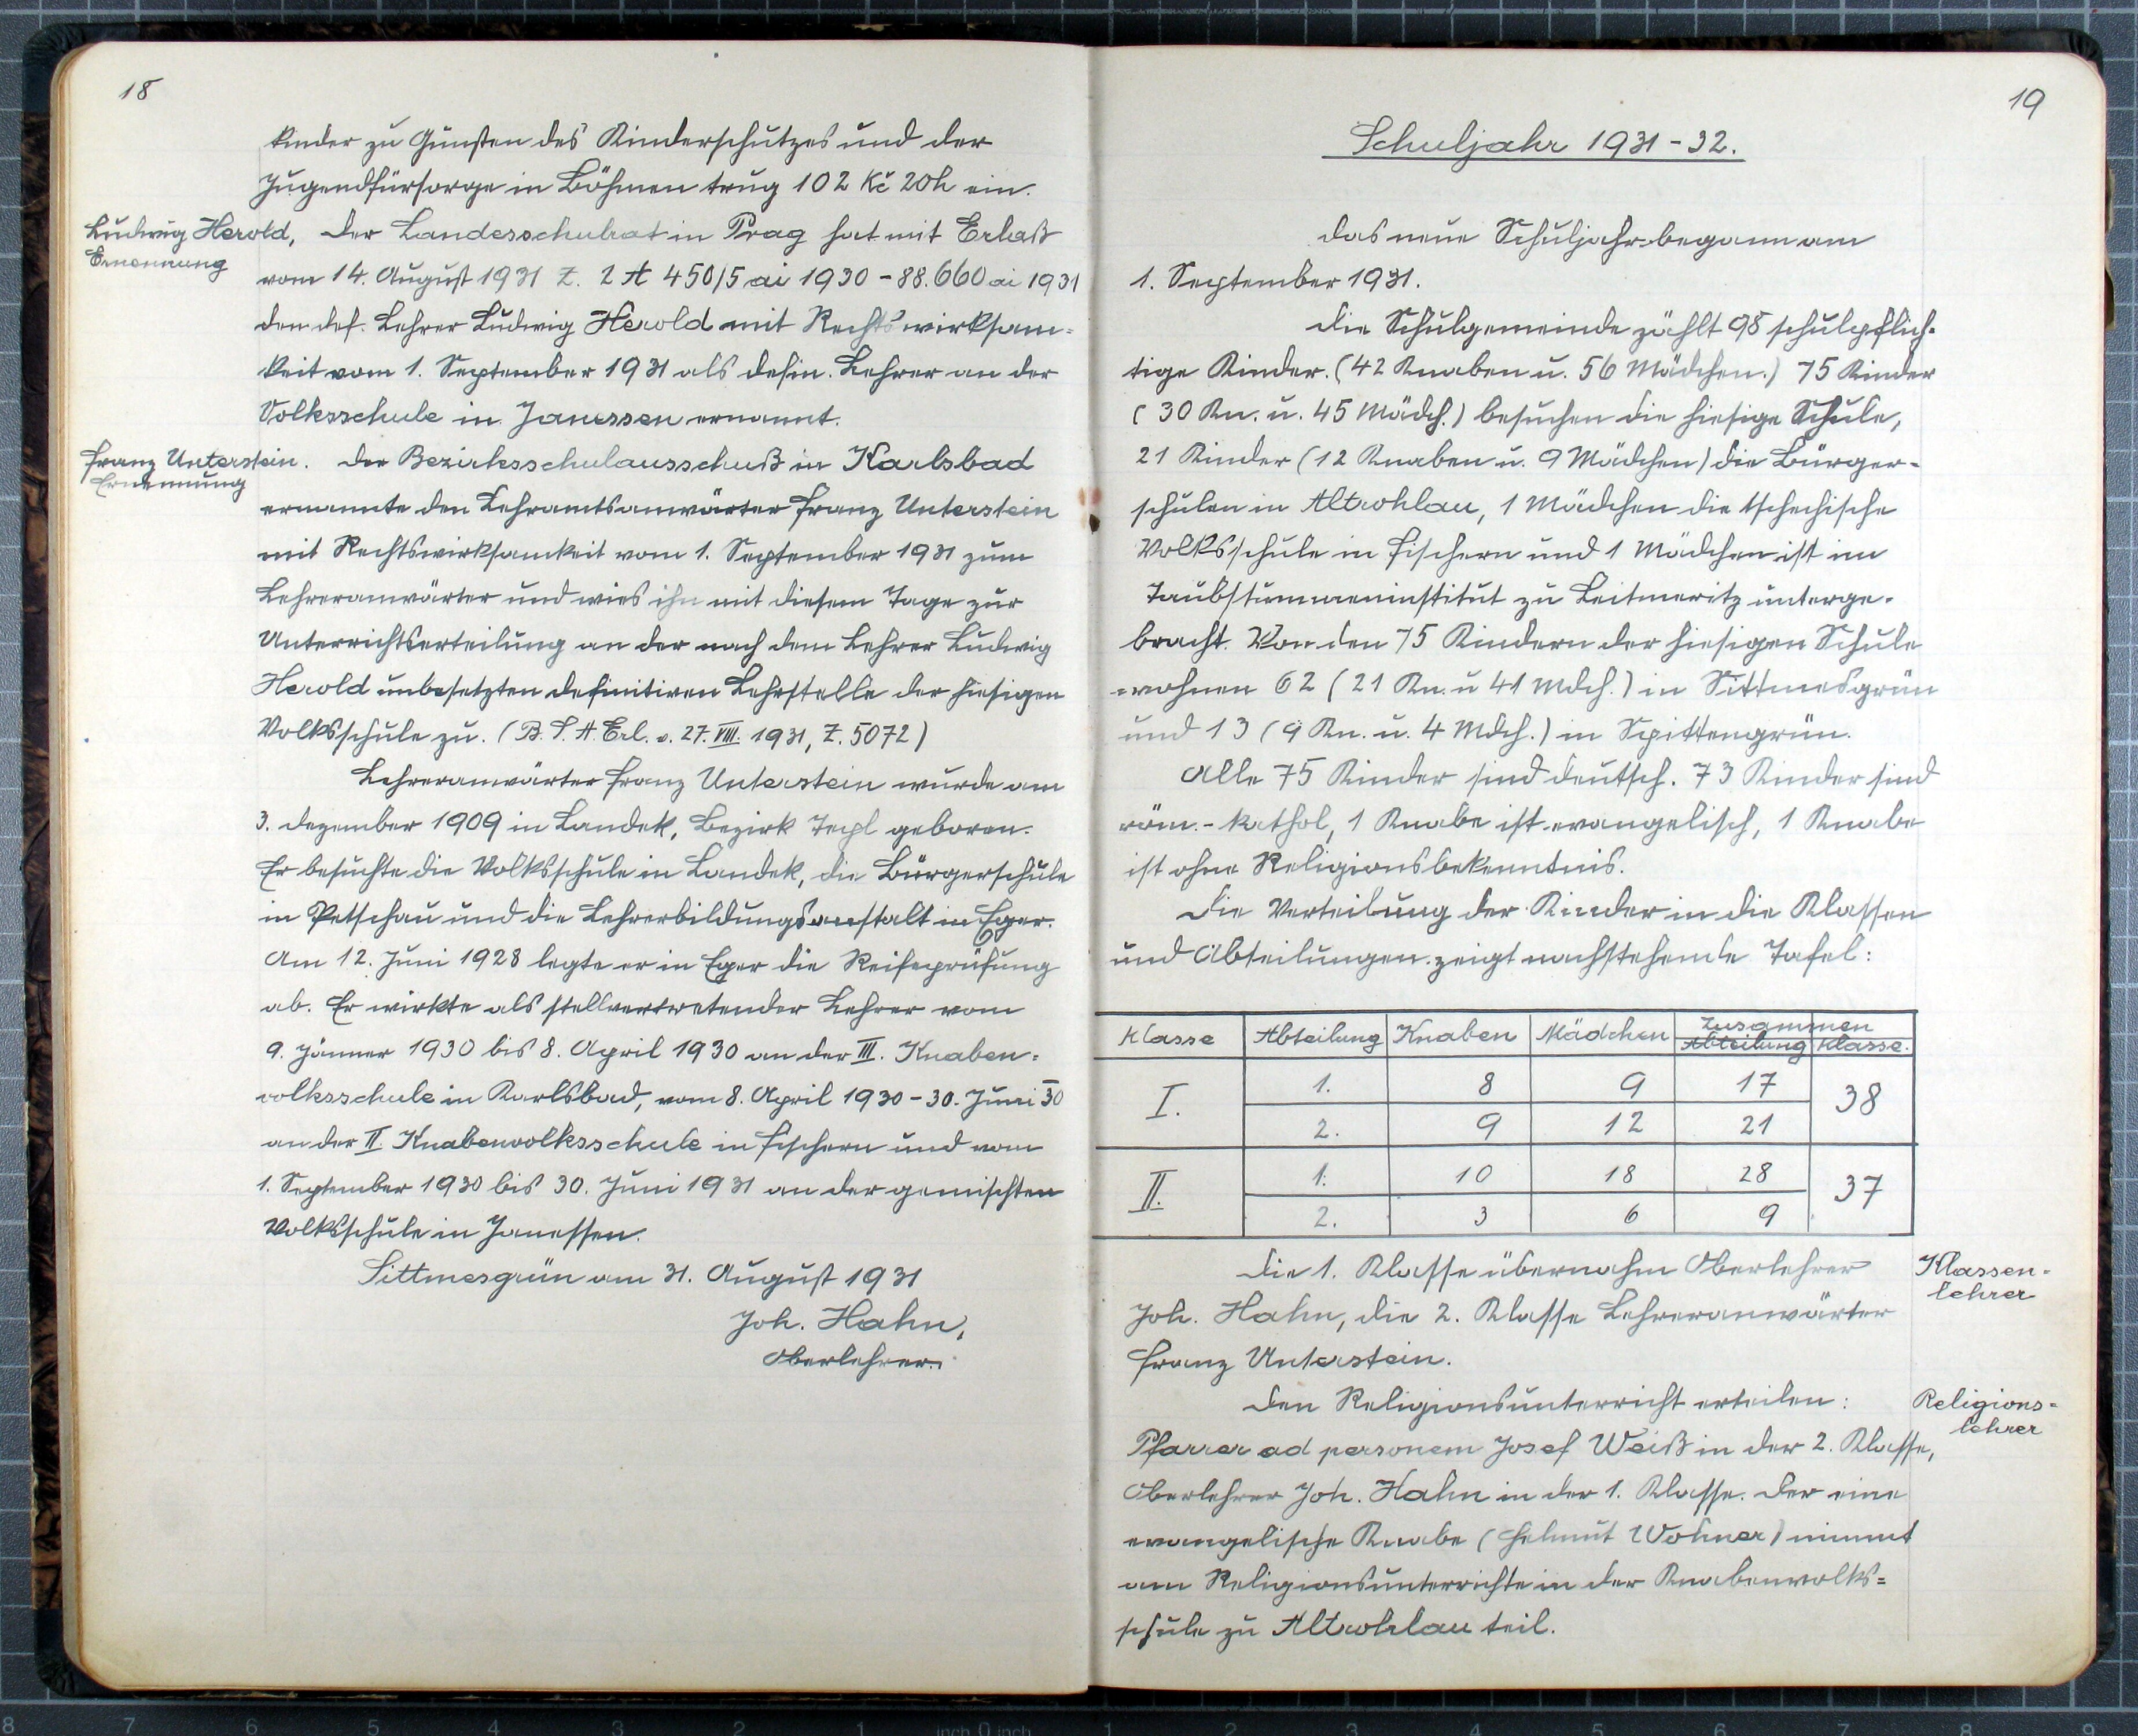 18
kinder zu Gunsten des Kinderschutzes und der
Jugendfürsorge in Böhmen trug 102 Kč 20h ein.
Ludwig Herold,
Ernennung
Der Landesschulrat in Prag hat mit Erlaß
vom 14. August 1931 Z. 2 A 450/5 ai 1930 - 88.660 ai 1931
den def. Lehrer Ludwig Herold mit Rechtswirksam=
keit vom 1. September 1931 als defin. Lehrer an der
Volksschule in Janessen ernannt.
Franz Unterstein.
Ernennung
Der Bezirksschulausschuß in Karlsbad
ernannte den Lehramtsanwärter Franz Unterstein
mit Rechtswirksamkeit vom 1. September 1931 zum
Lehreranwärter und wies ihn mit diesem Tage zur
Unterrichtserteilung an der nach dem Lehrer Ludwig
Herold unbesetzten definitiven Lehrstelle der hiesigen
Volksschule zu. (B. S. A. Erl. v. 27. VIII. 1931, Z. 5072)
Lehreranwärter Franz Unterstein wurde am
3. Dezember 1909 in Landek, Bezirk Tepl geboren.
Er besuchte die Volksschule in Landek, die Bürgerschule
in Petschau und die Lehrerbildungsanstalt in Eger.
Am 12. Juni 1928 legte er in Eger die Reifeprüfung
ab. Er wirkte als stellvertretender Lehrer vom
9. Jänner 1930 bis 8. April 1930 an der III. Knaben=
volksschule in Karlsbad, vom 8. April 1930 - 30. Juni 30
an der II. Knabenvolksschule in Fischern und vom
1. September 1930 bis 30. Juni 1931 an der gemischten
Volksschule in Janessen.
Sittmesgrün am 31. August 1931
Joh. Hahn,
Oberlehrer.
19
Schuljahr 1931-32.
Das neue Schuljahr begann am
1. September 1931.
Die Schulgemeinde zählt 98 schulpflich-
tige Kinder. (42 Knaben u. 56 Mädchen.) 75 Kinder
(30 Kn. u. 45 Mädch.) besuchen die hiesige Schule,
21 Kinder (12 Knaben u. 9 Mädchen) die Bürger-
schulen in Altrohlau, 1 Mädchen die tschechische
Volksschule in Fischern und 1 Mädchen ist im
Taubstummeninstitut zu Leitmeritz unterge-
bracht. Von den 75 Kindern der hiesigen Schule
wohnen 62 (21 Kn. u 41 Mdch.) in Sittmesgrün
und 13 (9 Kn. u. 4 Mdch.) in Spittengrün.
Alle 75 Kinder sind deutsch. 73 Kinder sind
röm.-kathol, 1 Knabe ist evangelisch, 1 Knabe
ist ohne Religionsbekenntnis.
Die Verteilung der Kinder in die Klassen
und Abteilungen zeigt nachstehende Tafel:
Klasse Abteilung Knaben Mädchen Zusammen
Abteilung Klasse.
I. 1. 8 9 17 38
2. 9 12 21
II. 1. 10 18 28 37
2. 3 6 9
Die 1. Klasse übernahm Oberlehrer
Joh. Hahn, die 2. Klasse Lehreranwärter
Franz Unterstein.
Klassen=
lehrer
Den Religionsunterricht erteilen:
Pfarrer ad personem Josef Weiß in der 2. Klasse,
Oberlehrer Joh. Hahn in der 1. Klasse. Der eine
evangelische Knabe (Helmut Wohner) nimmt
am Religionsunterrichte in der Knabenvolks=
schule zu Altrohlau teil.
Religions=
lehrer
8 7 6 5 4 3 2 1 inch 0 inch 1 2 3 4 5 6 7 8 9